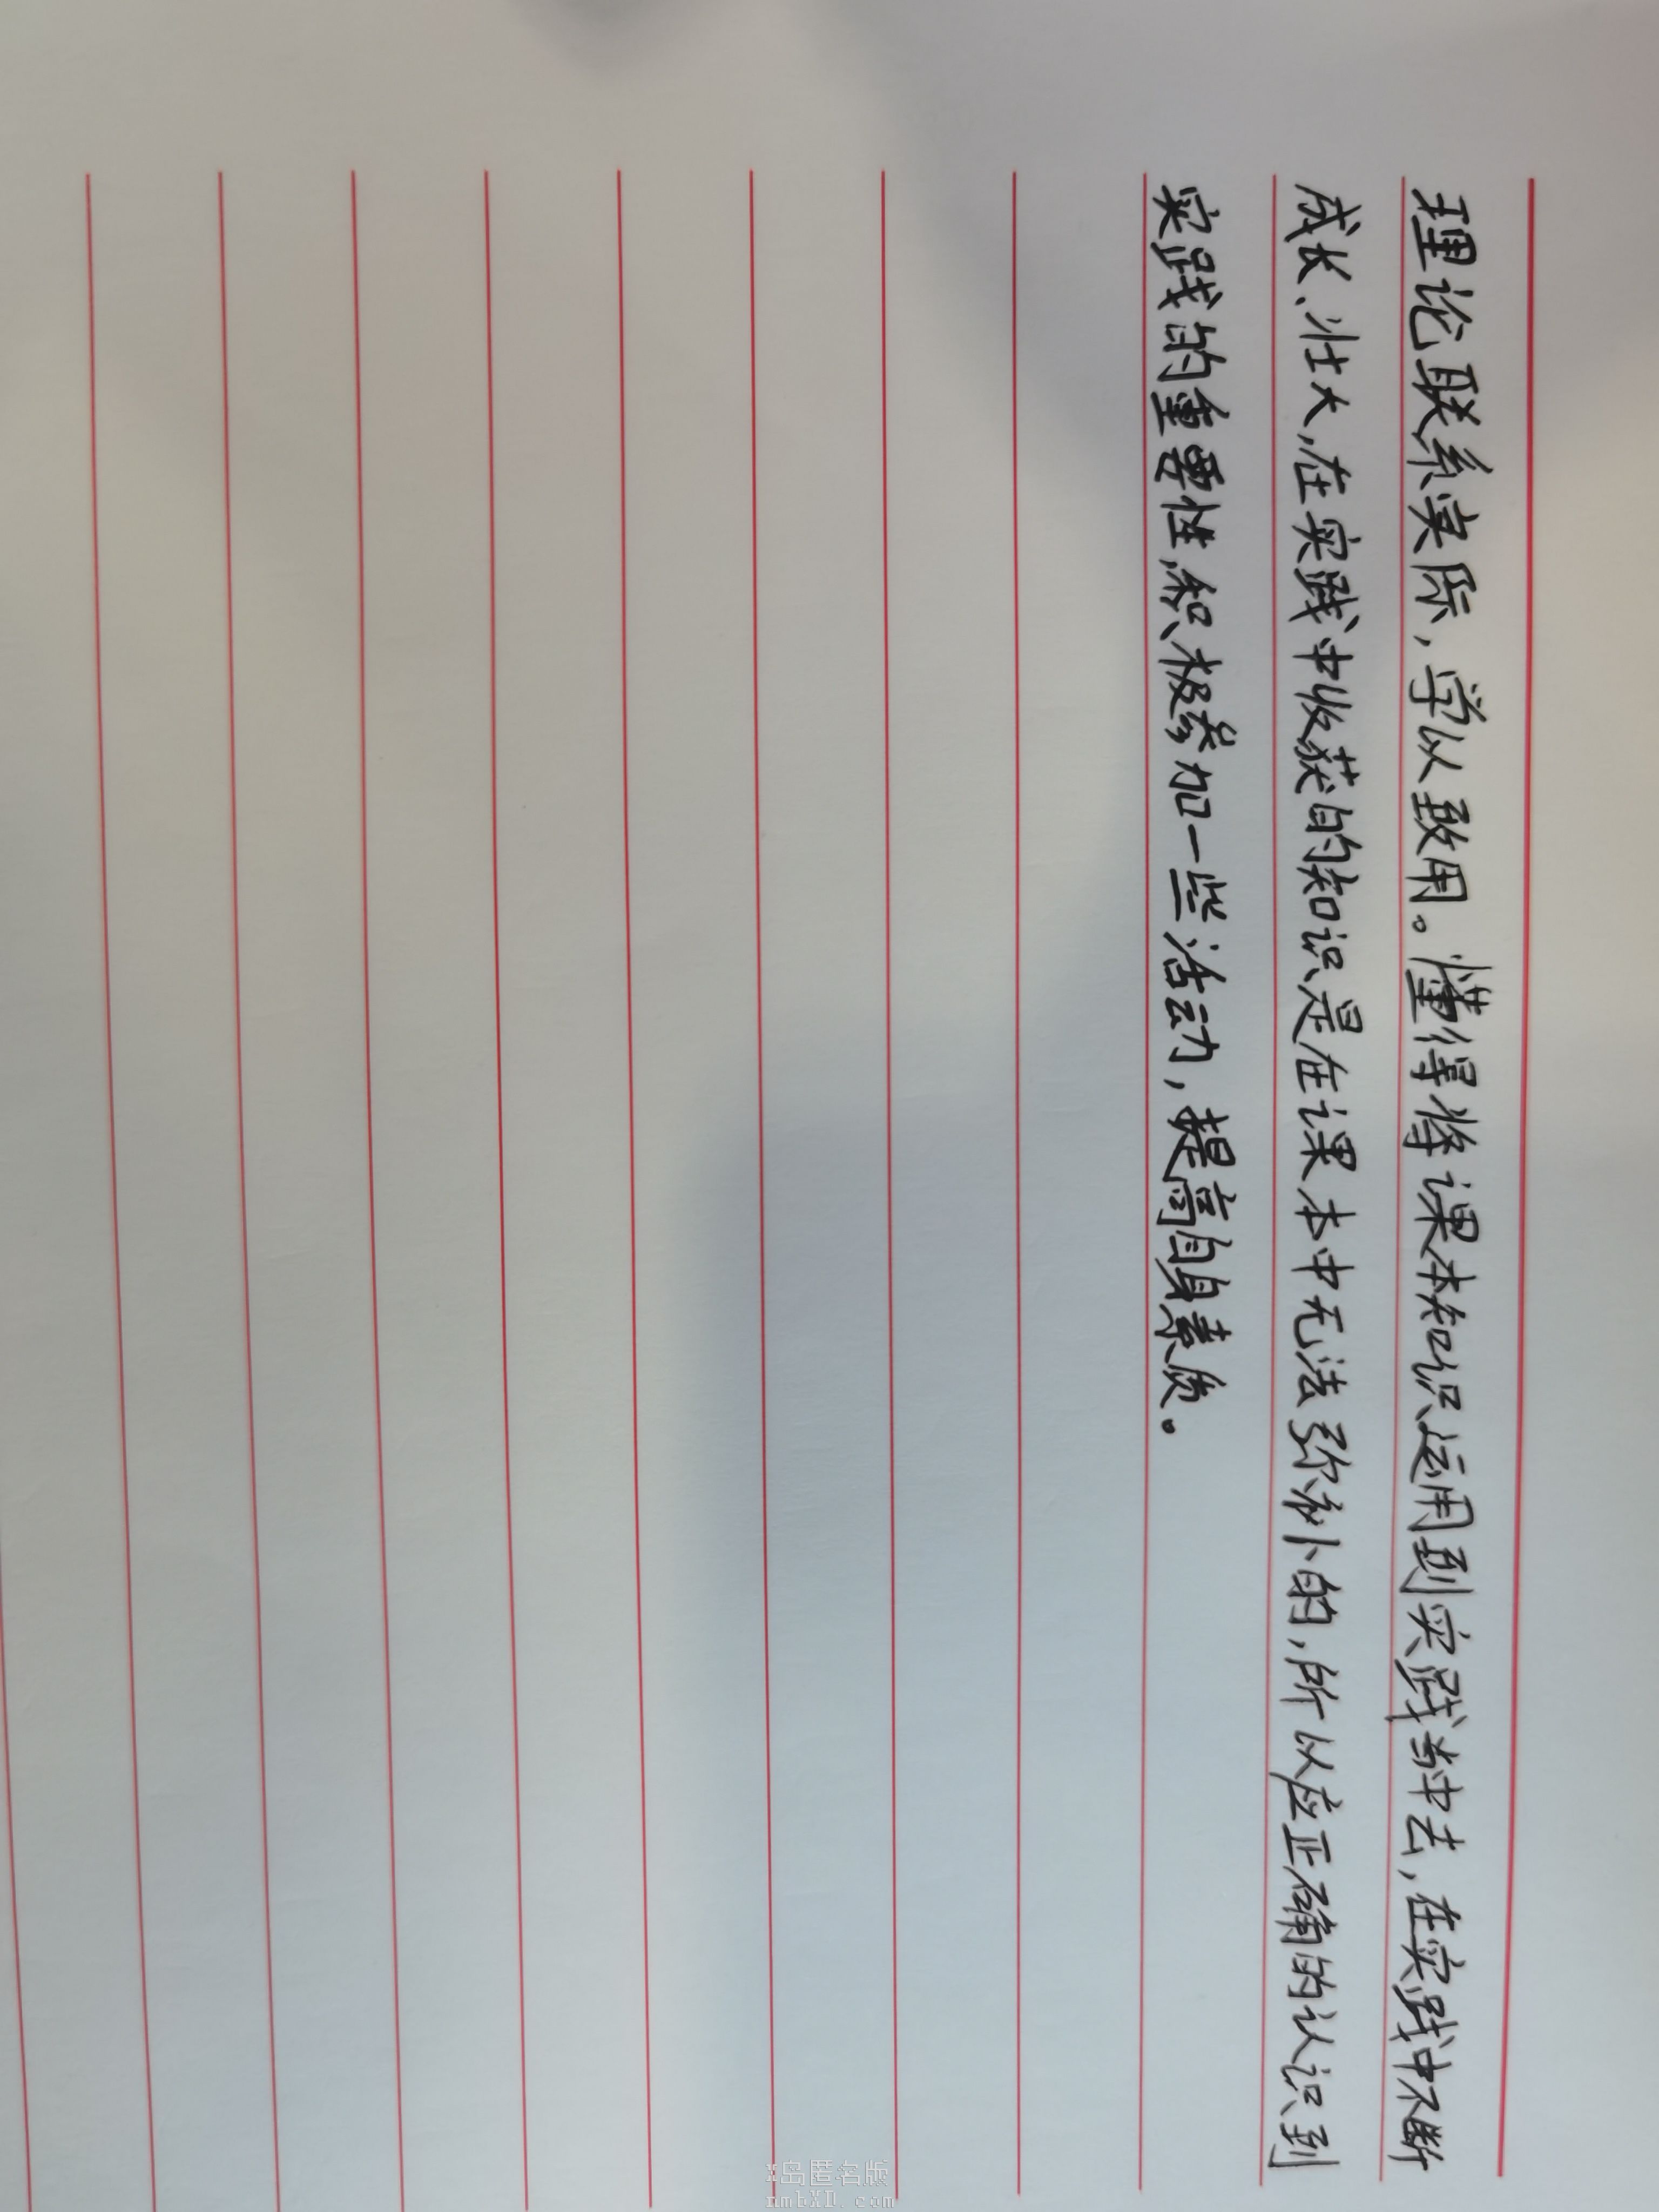 理论联系实际，学以致用。懂得将课本知识运用到实践当中去，在实践中不断
成长、壮大，在实践中收获的知识是在课本中无法弥补的，所以应正确的认识到
实践的重要性，积极参加一些活动，提高自身素质。
X岛匿名版
nmbXD.com